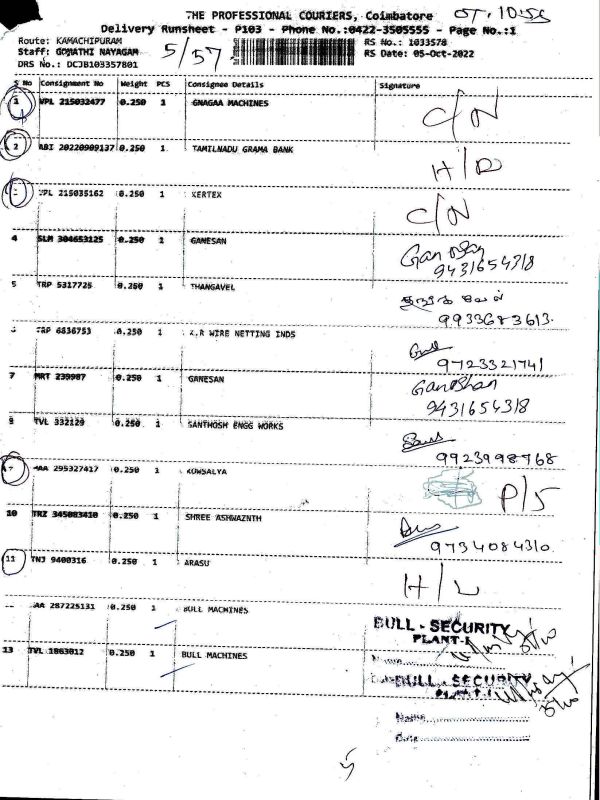 THE PROFESSIONAL COURIERS, Coimbatore
Delivery Runsheet - P103 - Phone No.:0422-3505555 - Page No.:1
Route: KAMACHIPURAM
RS No.: 1033578
Staff: GOMATHI NAYAGAM
5/57
RS Date: 05-Oct-2022
DRS No.: DCJB103357801
S No Consignment No Weight PCS Consignee Details Signature
1 VPL 215032477 0.250 1 GNAGAA MACHINES C/N
2 ABI 20220909137 0.250 1 TAMILNADU GRAMA BANK H/D
VPL 215035162 0.250 1 KERTEX C/N
4 SLM 304653125 0.250 1 GANESAN
9431654318
5 TRP 5317725 0.250 1 THANGAVEL
9933683613.
TRP 6836753 0.250 1 K.R WIRE NETTING INDS
9723321741
7 MRT 239987 0.250 1 GANESAN
9431654318
8 TVL 332129 0.250 1 SANTHOSH ENGG WORKS
9923998768
295327417 0.250 1 KOWSALYA P/S
10 TRZ 345083410 0.250 1 SHREE ASHWAZNTH
9734084310.
11 TNJ 9400316 0.250 1 ARASU H/L
287225131 0.250 1 BULL MACHINES
BULL - SECURITY
PLANT-I
13 TVL 1863012 0.250 1 BULL MACHINES
BULL - SECURITY
PLANT-I
Name
Date